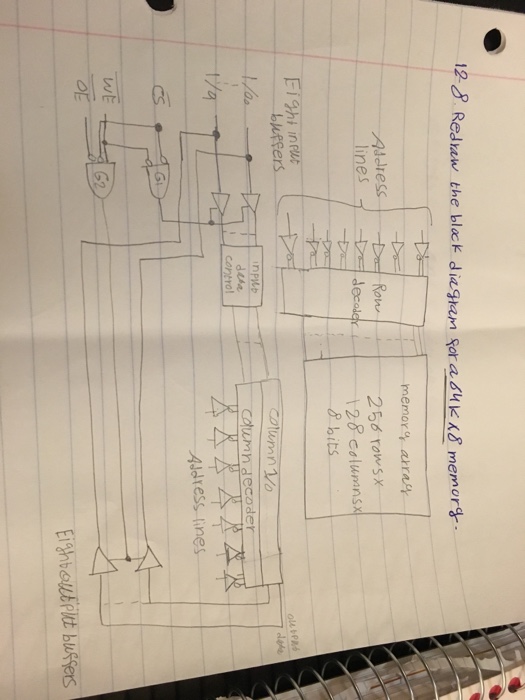 12-8. Redraw the block diagram for a 64K x8 memory.
Address
lines
Row
decoder
memory array
256 rows x
128 columns x
8 bits
Eight input
buffers
I/O0
I/O7
input
data
control
column I/O
column decoder
Address lines
output
data
CS
WE
OE
G1
G2
Eight output buffers